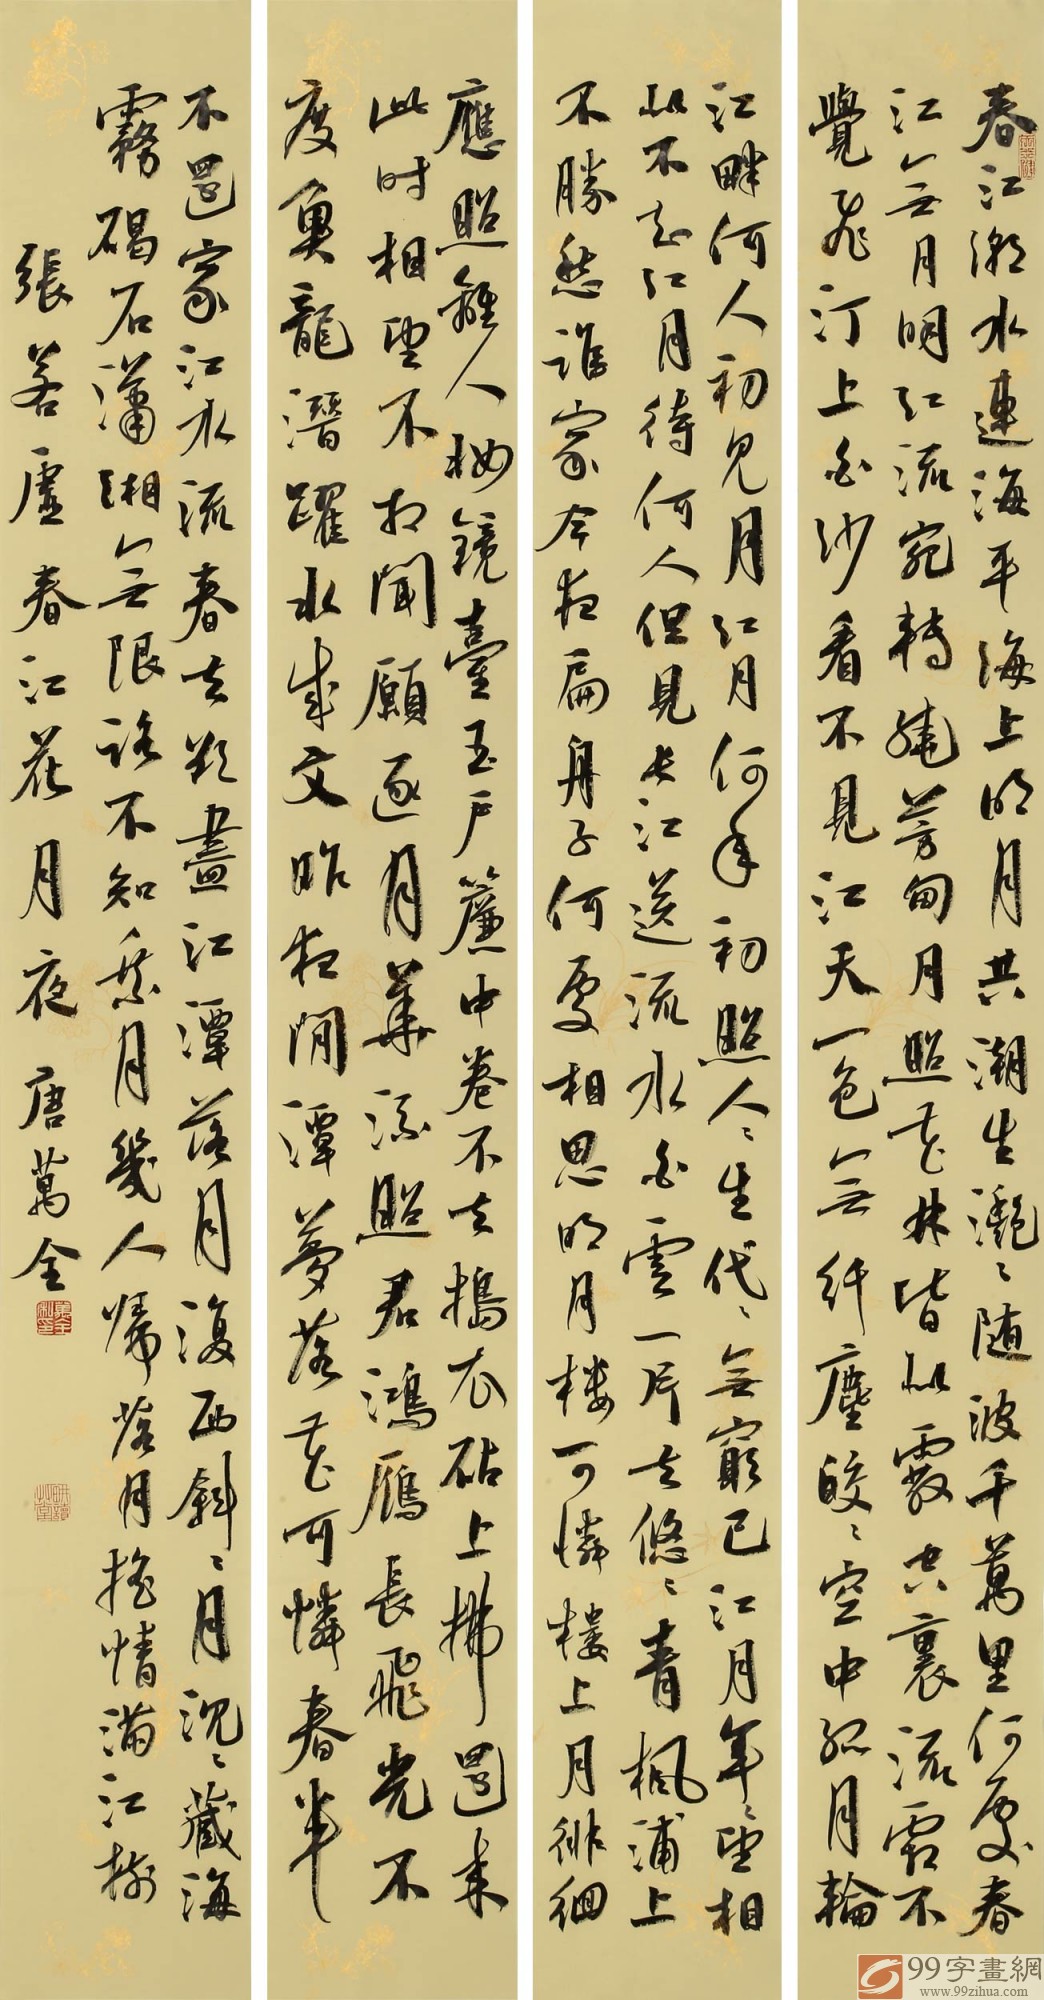 春江潮水連海平海上明月共潮生灩〻随波千萬里何處春
江無月明江流宛轉繞芳甸月照花林皆似霰空裏流霜不
覺飛汀上白沙看不見江天一色無纤塵皎〻空中孤月輪
江畔何人初見月江月何年初照人〻生代〻無窮已江月年〻望相
似不知江月待何人但見長江送流水白雲一片去悠〻青楓浦上
不勝愁誰家今夜扁舟子何處相思明月楼可憐楼上月徘徊
應照離人妝鏡臺玉户簾中卷不去搗衣砧上拂還來
此时相望不相聞願逐月華流照君鴻雁長飛光不
度魚龍潛躍水成文昨夜閒潭夢落花可憐春半
不還家江水流春去欲盡江潭落月復西斜〻月沉〻藏海
霧碣石瀟湘無限路不知乘月幾人歸落月摇情滿江樹
張若虚春江花月夜 唐萬金
99字畫網
www.99zihua.com